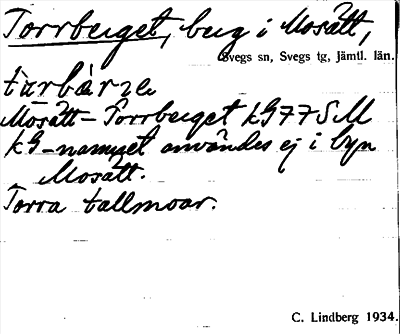 Torrberget, berg i Mosätt,
Svegs sn, Svegs tg, Jämtl. län.
tu̠rbàrʒe
Mosätt-Torrberget kG77SM
kG-namnet användes ej i byn
Mosätt.
Torra tallmoar.
C. Lindberg 1934.